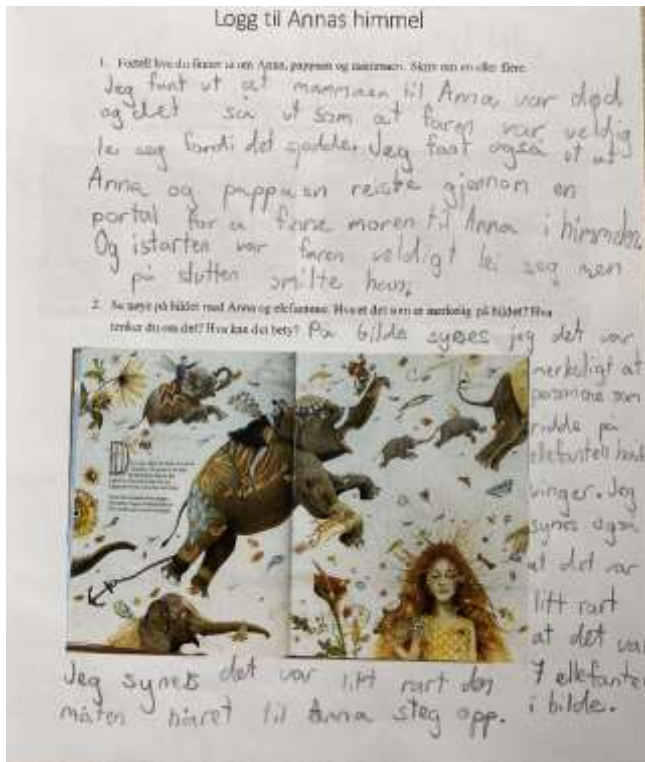 Logg til Annas himmel
1. Fortell hva du finner ut om Anna, pappaen og mammaen. Skriv om en eller flere.
Jeg fant ut at mammaen til Anna var død
og det så ut som at faren var veldig
lei seg fordi det sjedde. Jeg fant også ut at
Anna og pappaen reiste gjennom en
portal for å finne moren til Anna i himmelen.
Og istarten var faren veldigt lei seg men
på slutten smilte han.
2. Se nøye på bildet med Anna og elefantene. Hva er det som er merkelig på bildet? Hva
tenker du om det? Hva kan det bety? På bilde synes jeg det var
merkeligt at
personene som
ridde på
elefanten hadde
vinger. Jeg
synes også
at det var
litt rart
at det var
7 ellefanter
i bilde.
Jeg synes det var litt rart den
måten håret til Anna steg opp.